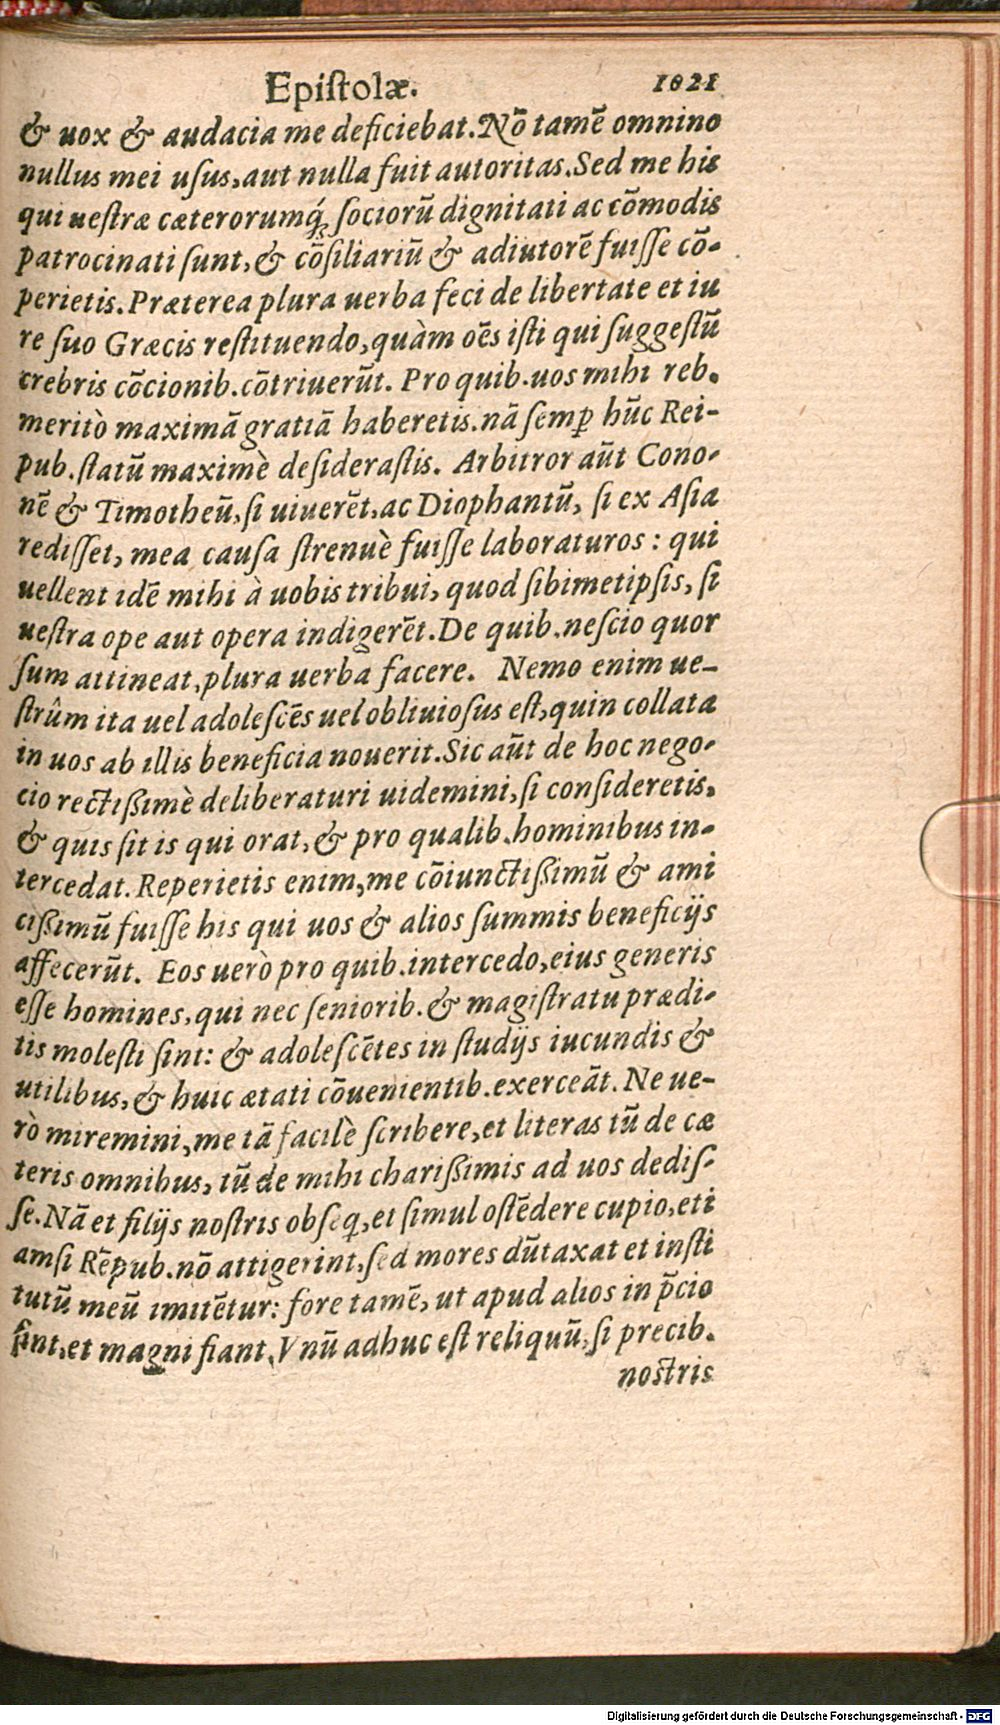 Epiſtolæ. 1021
& uox & audacia me deficiebat. Nō tamē omnino
nullus mei uſus, aut nulla fuit autoritas. Sed me his
qui ueſtræ cæterorumq́ꝫ ſociorū dignitati ac cōmodis
patrocinati ſunt, & cōſiliariū & adiutorē fuiſſe cō-
perietis. Præterea plura uerba feci de libertate et iu
re ſuo Græcis reſtituendo, quàm oēs iſti qui ſuggeſtū
crebris cōcionib. cōtriuerūt. Pro quib. uos mihi reb.
meritò maximā gratiā haberetis. nā ſemꝑ hūc Rei-
pub. ſtatū maximè deſideraſtis. Arbitror aūt Cono-
nē & Timotheū, ſi uiuerēt, ac Diophantū, ſi ex Aſia
rediſſet, mea cauſa ſtrenuè fuiſſe laboraturos : qui
uellent idē mihi à uobis tribui, quod ſibimetipſis, ſi
ueſtra ope aut opera indigerēt. De quib. neſcio quor
ſum attineat, plura uerba facere. Nemo enim ue-
ſtrûm ita uel adoleſcēs uel obliuioſus eſt, quin collata
in uos ab illis beneficia nouerit. Sic aūt de hoc nego-
cio rectißimè deliberaturi uidemini, ſi conſideretis.
& quis ſit is qui orat, & pro qualib. hominibus in-
tercedat. Reperietis enim, me cōiunctißimū & ami
cißimū fuiſſe his qui uos & alios ſummis beneficijs
affecerūt. Eos uerò pro quib. intercedo, eius generis
eſſe homines, qui nec ſeniorib. & magiſtratu prædi-
tis moleſti ſint: & adoleſcētes in ſtudijs iucundis &
utilibus, & huic ætati cōuenientib. exerceāt. Ne ue-
rò miremini, me tā facilè ſcribere, et literas tū de cæ
teris omnibus, tū de mihi charißimis ad uos dediſ-
ſe. Nā et filijs noſtris obſeq, et ſimul oſtēdere cupio, eti
amſi Rēpub. nō attigerint, ſed mores dūtaxat et inſti
tutū meū imitētur: fore tamē, ut apud alios in p̄cio
ſint, et magni fiant. Vnū adhuc eſt reliquū, ſi precib.
noſtris
Digitalisierung gefördert durch die Deutsche Forschungsgemeinschaft - DFG